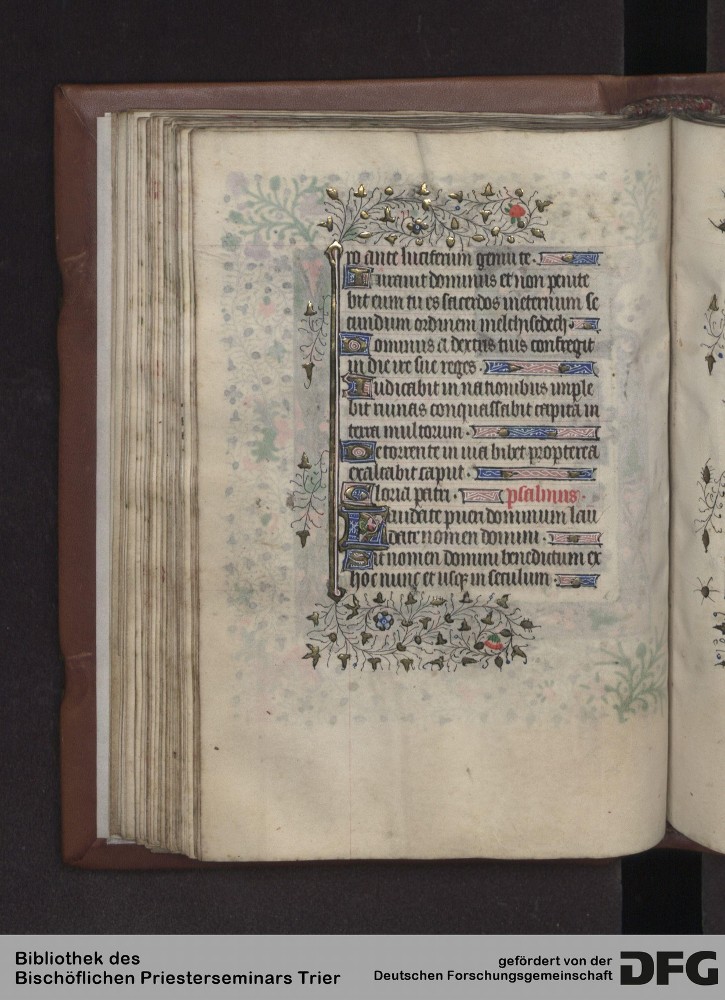 ro ante luciferum genui te.
Iurauit dominus et non penite
bit eum tu es sacerdos ineternum se
cundum ordinem melchisedech.
Dominus a dextris tuis confregit
in die ire sue reges.
Iudicabit in nationibus imple
bit ruinas conquassabit capita in
terra multorum.
De torrente in uia bibet propterea
exaltabit caput.
Gloria patri. psalmus.
Laudate pueri dominum lau
date nomen domini.
Sit nomen domini benedictum ex
hoc nunc et usq in seculum.
Bibliothek des
Bischöflichen Priesterseminars Trier
gefördert von der
Deutschen Forschungsgemeinschaft
DFG